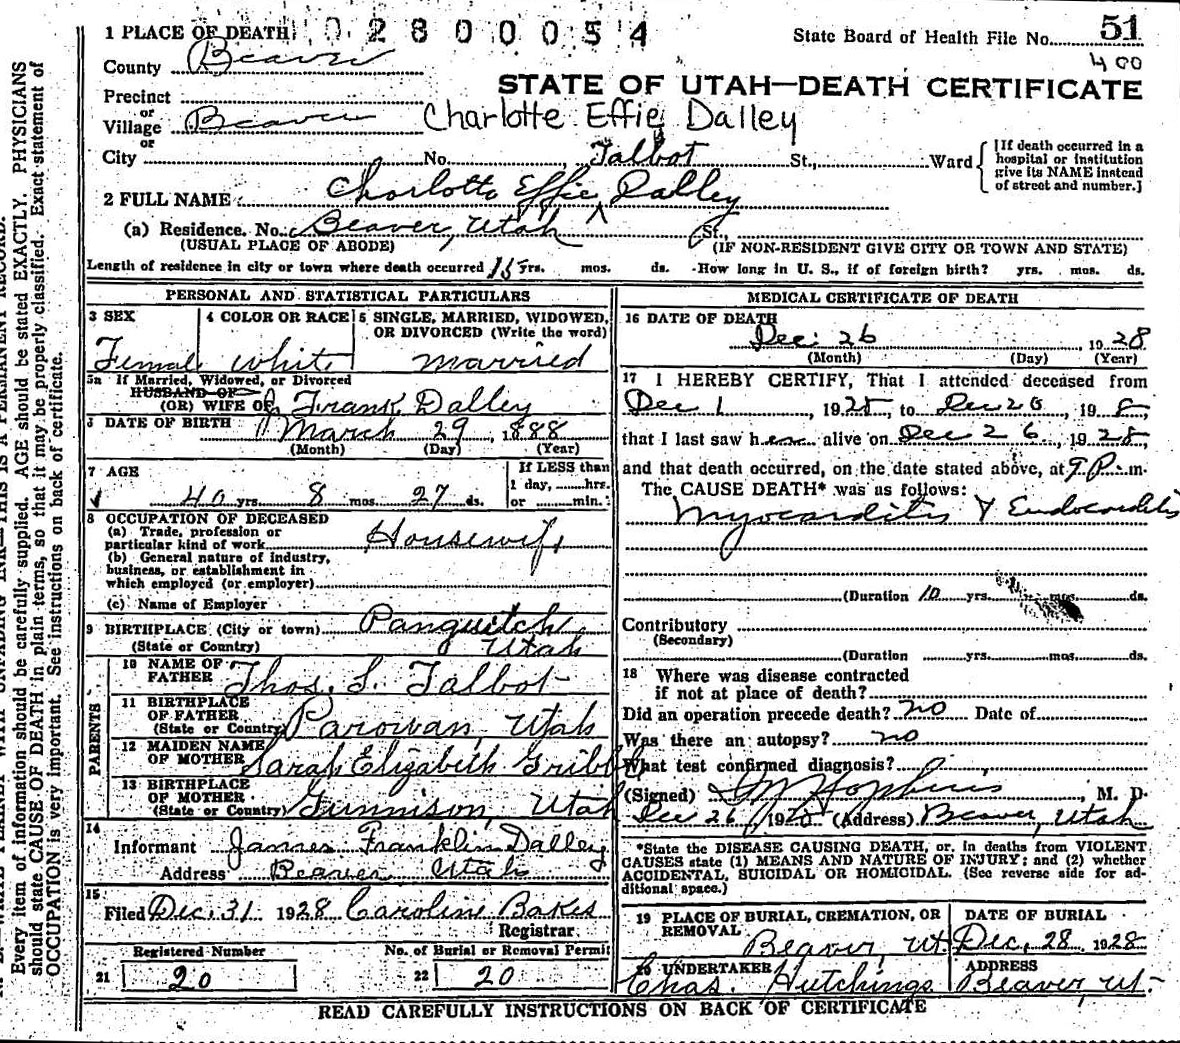 1 PLACE OF DEATH 02800054 State Board of Health File No. 51
County Beaver 400
STATE OF UTAH—DEATH CERTIFICATE
Precinct
or
Village Beaver Charlotte Effie Dalley
or
City No. Talbot St., Ward
[If death occurred in a hospital or institution give its NAME instead of street and number.]
2 FULL NAME Charlotte Effie ^ Dalley
(a) Residence. No. Beaver, Utah St.
(USUAL PLACE OF ABODE) (IF NON-RESIDENT GIVE CITY OR TOWN AND STATE)
Length of residence in city or town where death occurred 15 yrs. mos. ds. How long in U. S., if of foreign birth? yrs. mos. ds.
PERSONAL AND STATISTICAL PARTICULARS
3 SEX 4 COLOR OR RACE 5 SINGLE, MARRIED, WIDOWED, OR DIVORCED (Write the word)
Female White Married
5a If Married, Widowed, or Divorced
HUSBAND OF
(OR) WIFE OF J. Frank Dalley
6 DATE OF BIRTH March 29, 1888
(Month) (Day) (Year)
7 AGE If LESS than
1 day, hrs.
40 yrs. 8 mos. 27 ds. or min.
8 OCCUPATION OF DECEASED
(a) Trade, profession or
particular kind of work Housewife
(b) General nature of industry,
business, or establishment in
which employed (or employer)
(c) Name of Employer
9 BIRTHPLACE (City or town) Panguitch
(State or Country) Utah
PARENTS
10 NAME OF
FATHER Thos. S. Talbot
11 BIRTHPLACE
OF FATHER
(State or Country) Parowan, Utah
12 MAIDEN NAME
OF MOTHER Sarah Elizabeth Gribble
13 BIRTHPLACE
OF MOTHER
(State or Country) Gunnison, Utah
14
Informant James Franklin Dalley
Address Beaver, Utah
15
Filed Dec. 31 1928 Caroline Bakes
Registrar.
Registered Number No. of Burial or Removal Permit
21 20 22 20
MEDICAL CERTIFICATE OF DEATH
16 DATE OF DEATH
Dec. 26 1928
(Month) (Day) (Year)
17 I HEREBY CERTIFY, That I attended deceased from
Dec 1, 1928, to Dec 26, 198,
that I last saw her alive on Dec 26, 1928,
and that death occurred, on the date stated above, at 9 P. m.
The CAUSE DEATH* was as follows:
Myocarditis & Endocarditis
(Duration 10 yrs. mos. ds.
Contributory
(Secondary)
(Duration yrs. mos. ds.
18 Where was disease contracted
if not at place of death?
Did an operation precede death? no Date of
Was there an autopsy? no
What test confirmed diagnosis?
(Signed) Hopkins, M. D.
Dec 26, 1928 (Address) Beaver, Utah
*State the DISEASE CAUSING DEATH, or, in deaths from VIOLENT
CAUSES state (1) MEANS AND NATURE OF INJURY; and (2) whether
ACCIDENTAL, SUICIDAL OR HOMICIDAL. (See reverse side for ad-
ditional space.)
19 PLACE OF BURIAL, CREMATION, OR REMOVAL DATE OF BURIAL
Beaver, Ut. Dec. 28 1928
20 UNDERTAKER ADDRESS
Chas. Hutchings Beaver, Ut.
READ CAREFULLY INSTRUCTIONS ON BACK OF CERTIFICATE
Every item of information should be carefully supplied. AGE should be stated EXACTLY. PHYSICIANS
should state CAUSE OF DEATH in plain terms, so that it may be properly classified. Exact statement of
OCCUPATION is very important. See instructions on back of certificate.